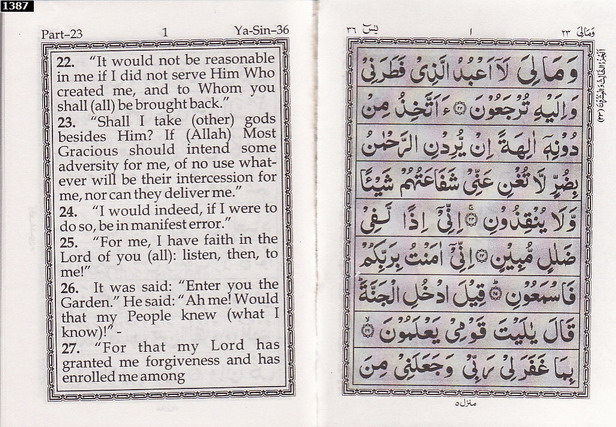 1387
Part–23 1 Ya-Sin–36
22. “It would not be reasonable
in me if I did not serve Him Who
created me, and to Whom you
shall (all) be brought back.”
23. “Shall I take (other) gods
besides Him? If (Allah) Most
Gracious should intend some
adversity for me, of no use what-
ever will be their intercession for
me, nor can they deliver me.”
24. “I would indeed, if I were to
do so, be in manifest error.”
25. “For me, I have faith in the
Lord of you (all): listen, then, to
me!”
26. It was said: “Enter you the
Garden.” He said: “Ah me! Would
that my People knew (what I
know)!” -
27. “For that my Lord has
granted me forgiveness and has
enrolled me among
وَمَالِىَ ٢٣ ١ يٰسٓ ٣٦
وَمَا لِىَ لَآ اَعْبُدُ الَّذِىْ فَطَرَنِىْ
وَاِلَيْهِ تُرْجَعُوْنَ ۝٢٢ ءَاَتَّخِذُ مِنْ
دُوْنِهٖٓ اٰلِهَةً اِنْ يُّرِدْنِ الرَّحْمٰنُ
بِضُرٍّ لَّا تُغْنِ عَنِّىْ شَفَاعَتُهُمْ شَيْئًا
وَّلَا يُنْقِذُوْنِ ۝٢٣ اِنِّىْٓ اِذًا لَّفِىْ
ضَلٰلٍ مُّبِيْنٍ ۝٢٤ اِنِّىْٓ اٰمَنْتُ بِرَبِّكُمْ
فَاسْمَعُوْنِ ۝٢٥ قِيْلَ ادْخُلِ الْجَنَّةَ ؕ
قَالَ يٰلَيْتَ قَوْمِىْ يَعْلَمُوْنَ ۝٢٦
بِمَا غَفَرَ لِىْ رَبِّىْ وَجَعَلَنِىْ مِنَ
منزل ٥